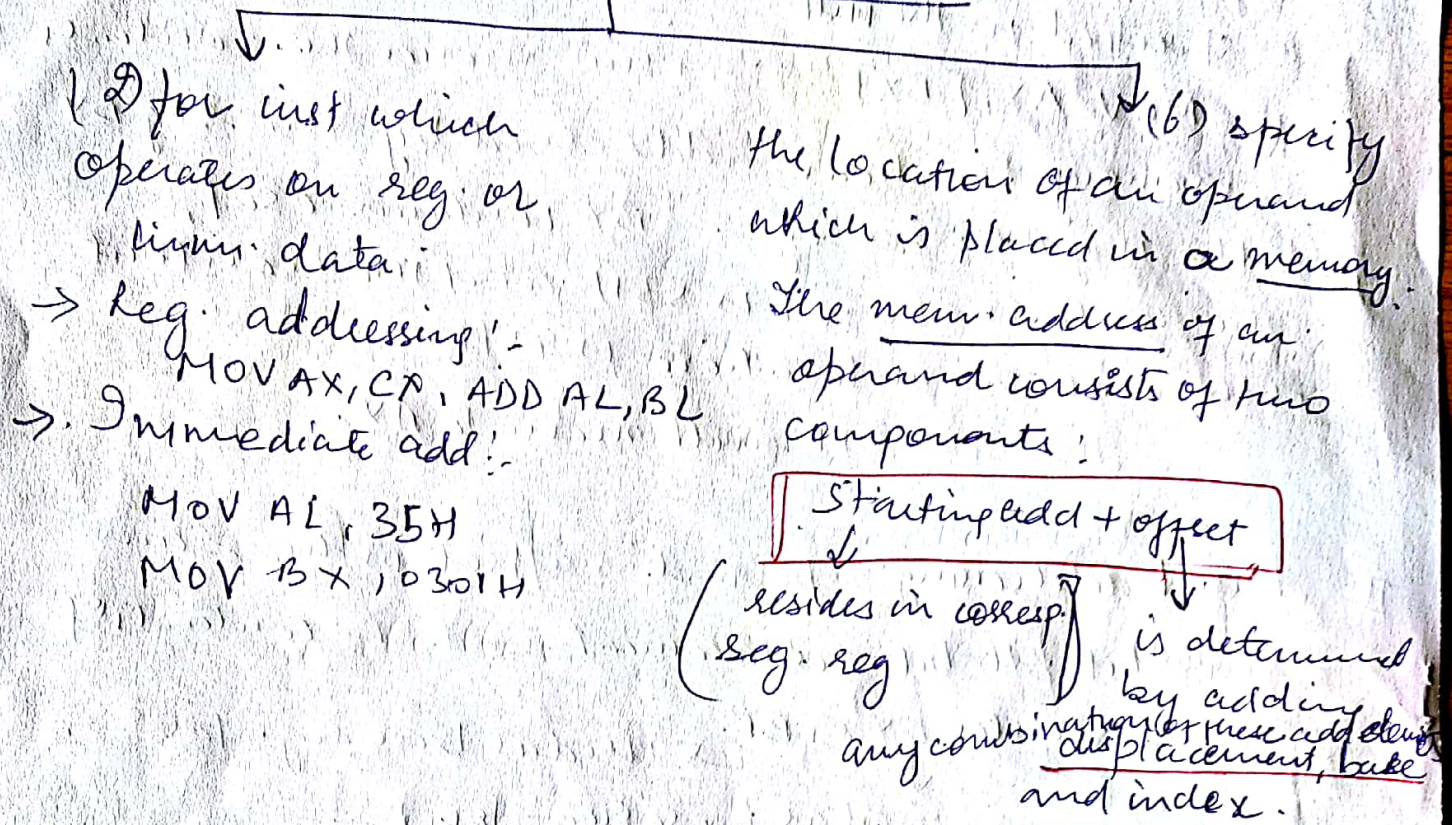 (2) for inst which
operates on reg. or
imm. data.
→ Reg. addressing :-
MOV AX, CX, ADD AL, BL
→ Immediate add :-
MOV AL, 35H
MOV BX, 0301H
(6) specify
the location of an operand
which is placed in a memory.
The mem. address of an
operand consists of two
components :
Starting add + offset
(resides in corresp.
seg. reg)
is determined
by adding
any combination of these add
displacement, base
and index.